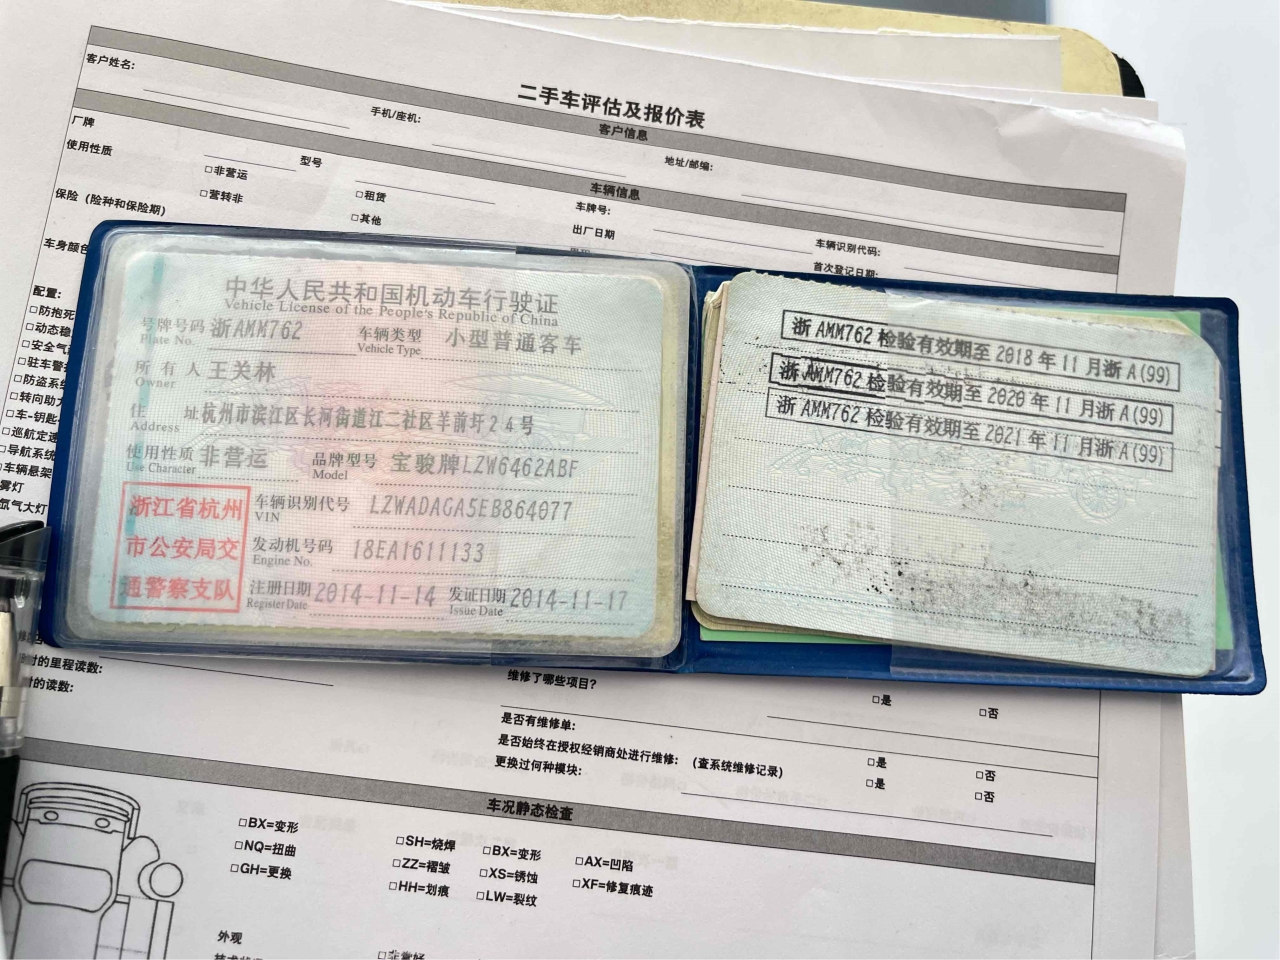 二手车评估及报价表
客户信息
客户姓名:
手机/座机:
地址/邮编:
车辆信息
厂牌
型号
车牌号:
车辆识别代码:
使用性质
□非营运
□租赁
出厂日期
首次登记日期:
□营转非
□其他
保险（险种和保险期）
车身颜色
配置:
□防抱死
□动态稳
□安全气
□驻车警
□防盗系统
□转向助力
□车-钥匙
□巡航定速
□导航系统
□车辆悬架
雾灯
氙气大灯
中华人民共和国机动车行驶证
Vehicle License of the People's Republic of China
号牌号码 浙AMM762 车辆类型 小型普通客车
Plate No. Vehicle Type
所有人 王关林
Owner
住址 杭州市滨江区长河街道江二社区羊前圩24号
Address
使用性质 非营运 品牌型号 宝骏牌LZW6462ABF
Use Character Model
浙江省杭州
市公安局交
通警察支队
车辆识别代号 LZWADAGA5EB864077
VIN
发动机号码 18EA1611133
Engine No.
注册日期 2014-11-14 发证日期 2014-11-17
Register Date Issue Date
浙AMM762检验有效期至2018年11月浙A(99)
浙AMM762检验有效期至2020年11月浙A(99)
浙AMM762检验有效期至2021年11月浙A(99)
时的里程读数:
时的读数:
维修了哪些项目?
□是 □否
是否有维修单:
是否始终在授权经销商处进行维修: (查系统维修记录) □是 □否
更换过何种模块: □是 □否
车况静态检查
□BX=变形 □SH=烧焊 □BX=变形 □AX=凹陷
□NQ=扭曲 □ZZ=褶皱 □XS=锈蚀 □XF=修复痕迹
□GH=更换 □HH=划痕 □LW=裂纹
外观
□非常好